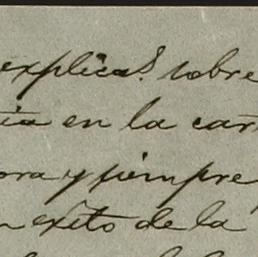 explicas. sobre
cia en la car
ora y siempre
n exito de la